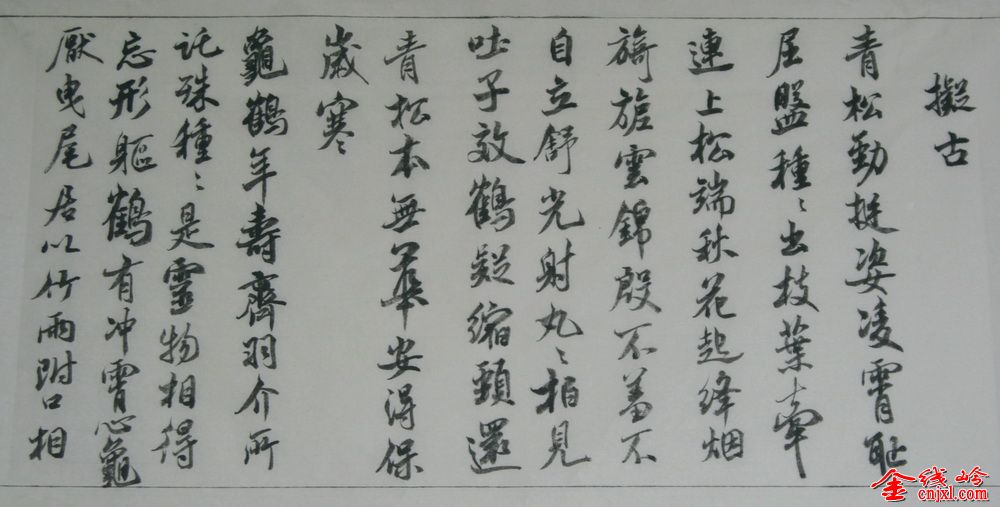 擬古
青松勁挺姿凌霄恥
屈盤種〻出枝葉牽
連上松端秋花起絳烟
旖旎雲錦殷不羞不
自立舒光射丸〻柏見
吐子效鶴疑縮頸還
青松本無華安得保
歲寒
龜鶴年壽齊羽介所
託殊種〻是靈物相得
忘形軀鶴有冲霄心龜
厭曳尾居以竹兩附口相
金线岭
cnjxl.com